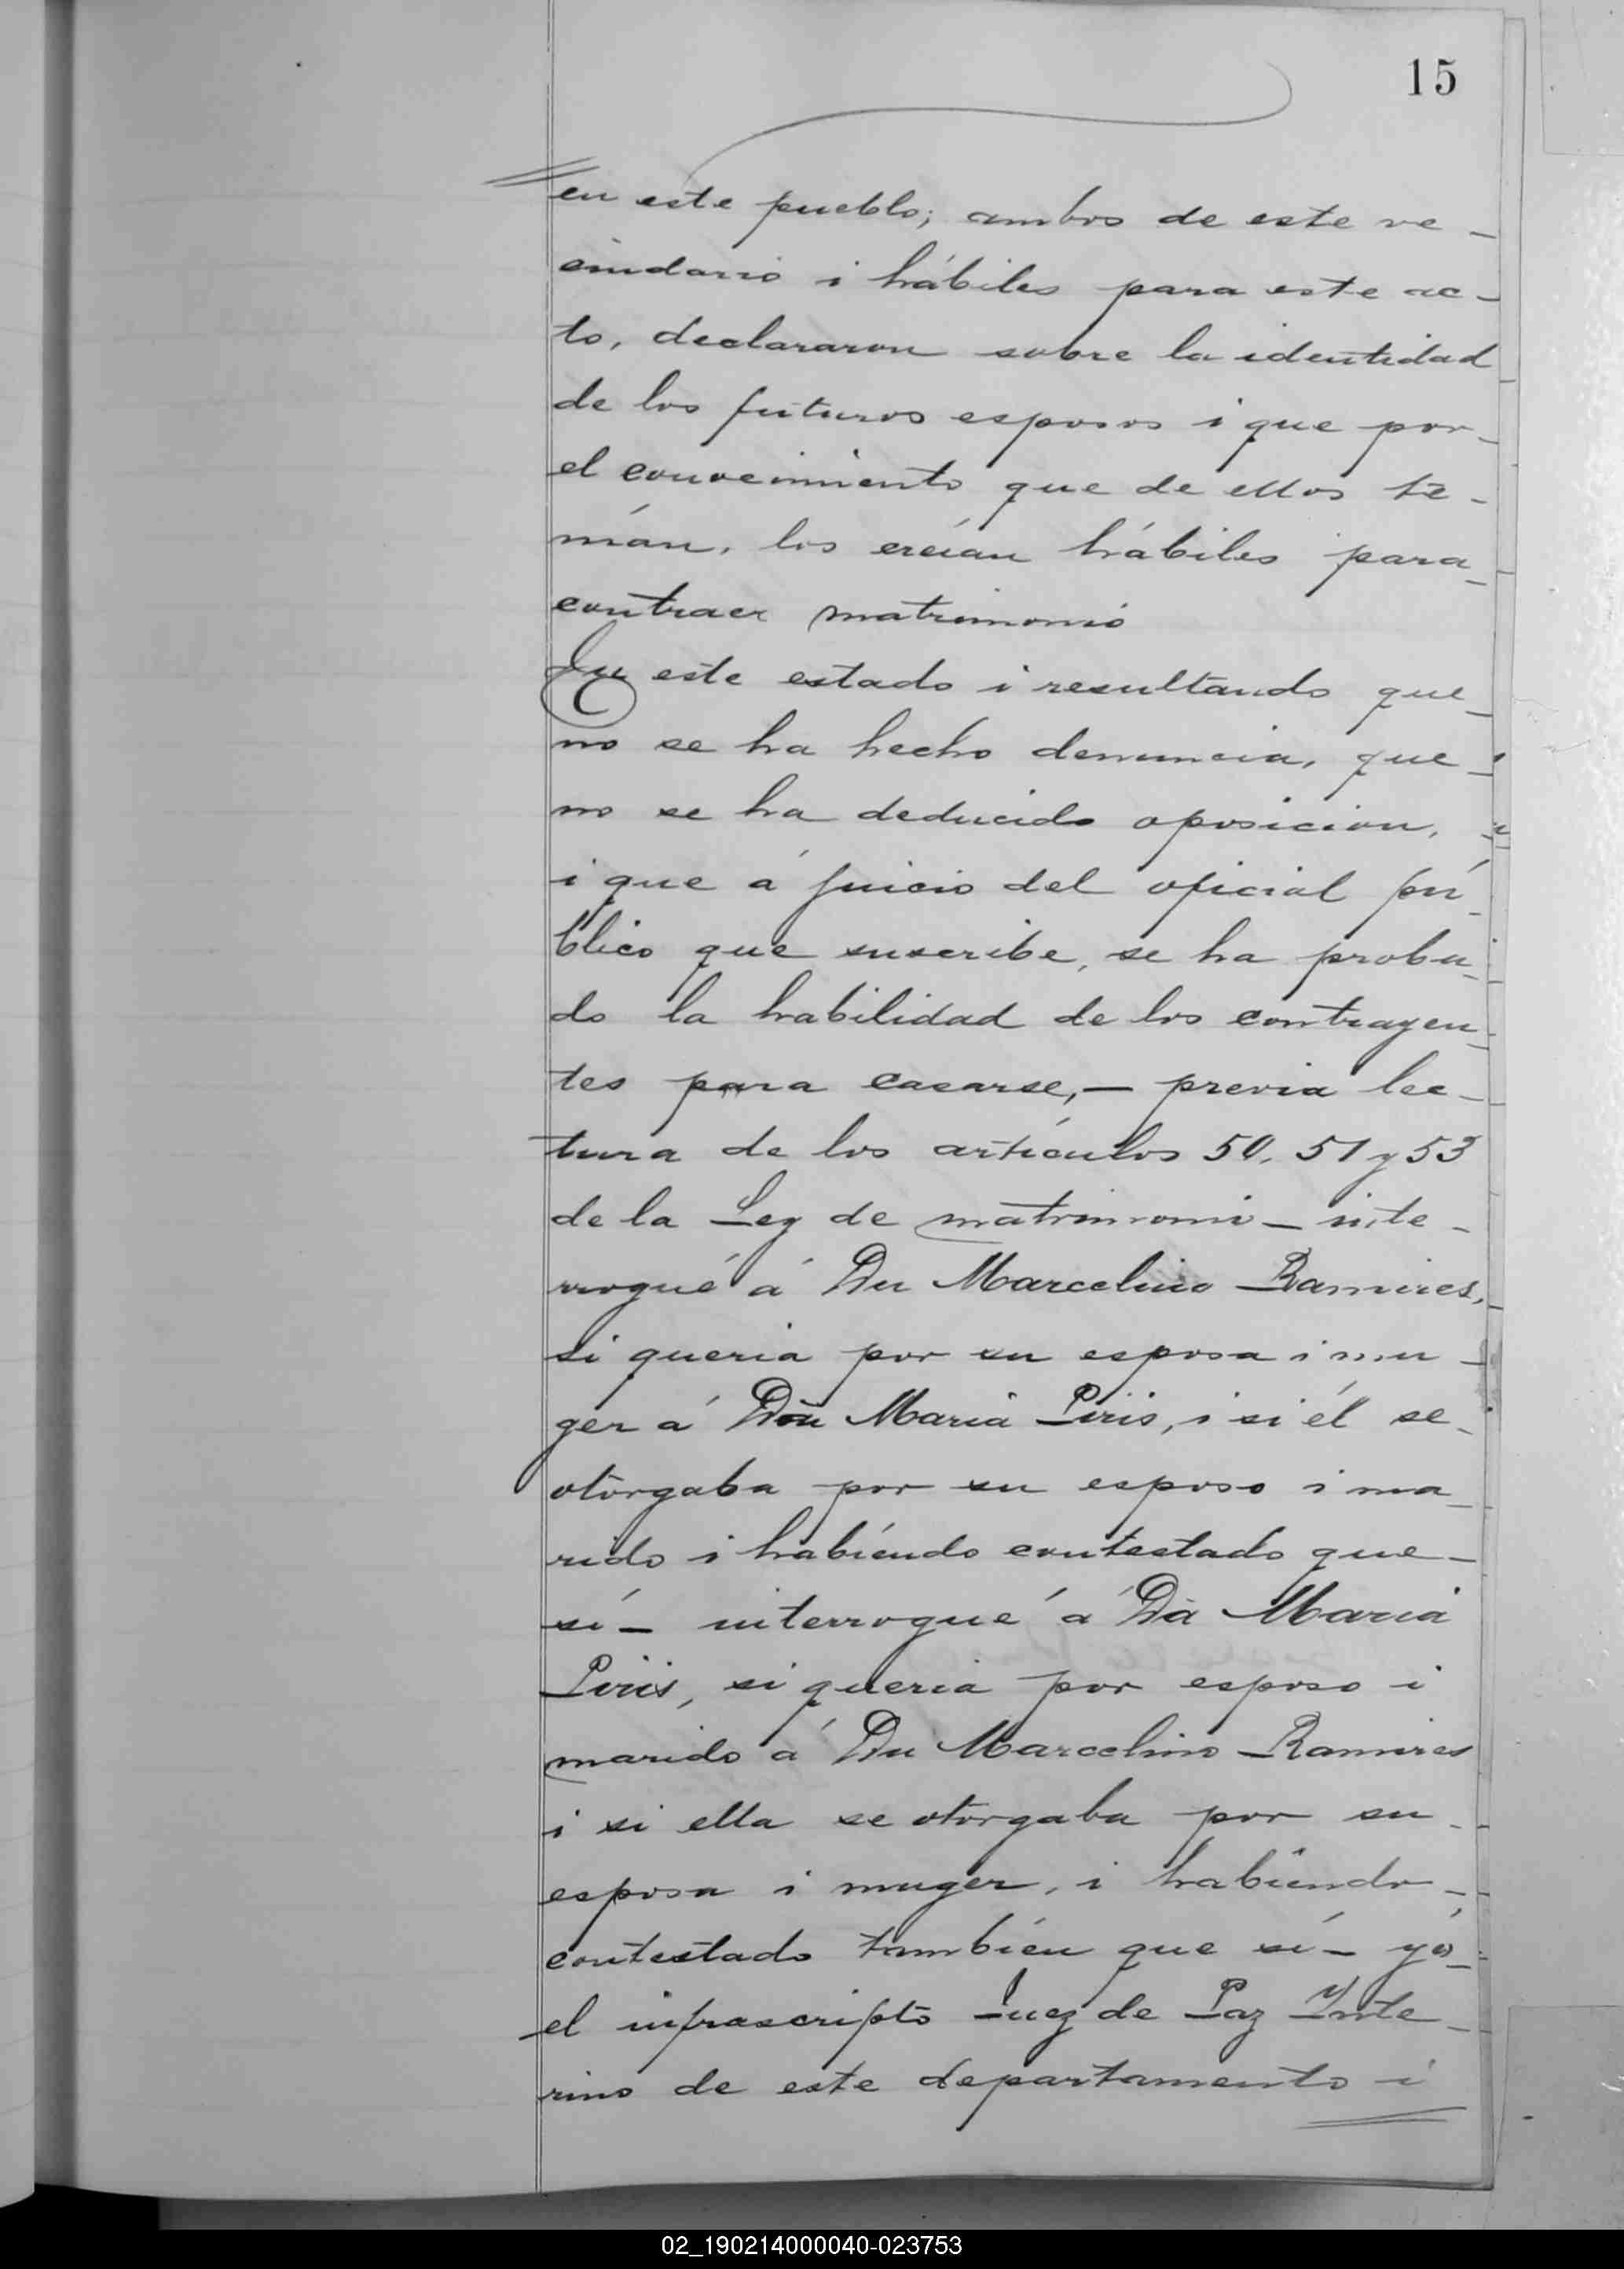 15
en este pueblo; ambos de este ve-
cindario i hábiles para este ac-
to, declararon sobre la identidad
de los futuros esposos i que por-
el conocimiento que de ellos te-
nían, los creían hábiles para-
contraer matrimonio
En este estado i resultando que-
no se ha hecho denuncia, que-
no se ha deducido oposicion,
i que á juicio del oficial pú-
blico que suscribe, se ha proba-
do la habilidad de los contrayen-
tes para casarse,- previa lec-
tura de los artículos 50, 51 y 53
de la Ley de matrimonio - inte-
rrogué á Dn Marcelino Ramires,
si queria por su esposa i mu-
ger á Dña Maria Piris, i si él se-
otorgaba por su esposo i ma-
rido i habiendo contestado que-
sí - interrogué á Da Maria
Piris, si queria por esposo i
marido á Dn Marcelino Ramires
i si ella se otorgaba por su-
esposa i muger, i habiendo-
contestado también que sí - yó,
el infrascripto Juez de Paz Inte-
rino de este departamento i
02_190214000040-023753